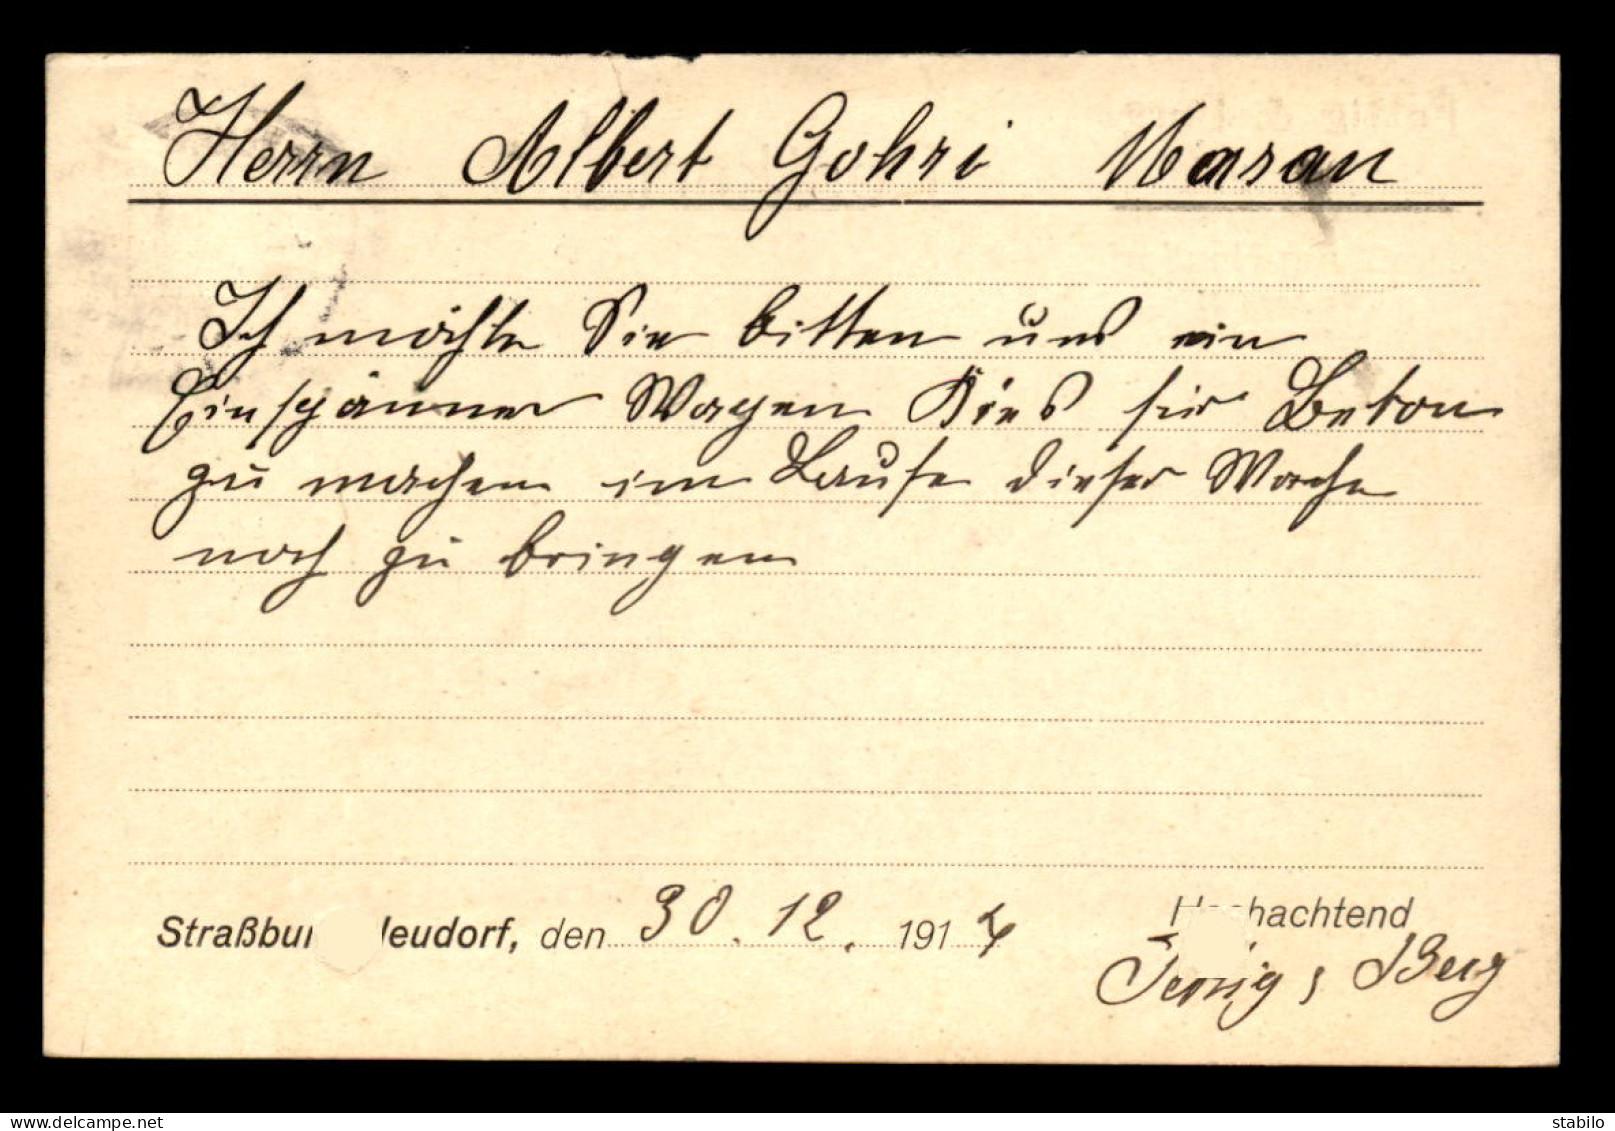 Herrn Albert Gohri
Ich möchte Sie bitten uns ein
Einspänner Wagen Kies für Beton
zu machen im Laufe dieser Woche
noch zu bringen
Straßbur leudorf, den 30. 12. 1914
Hochachtend
Berg
delcampe.net
stabilo